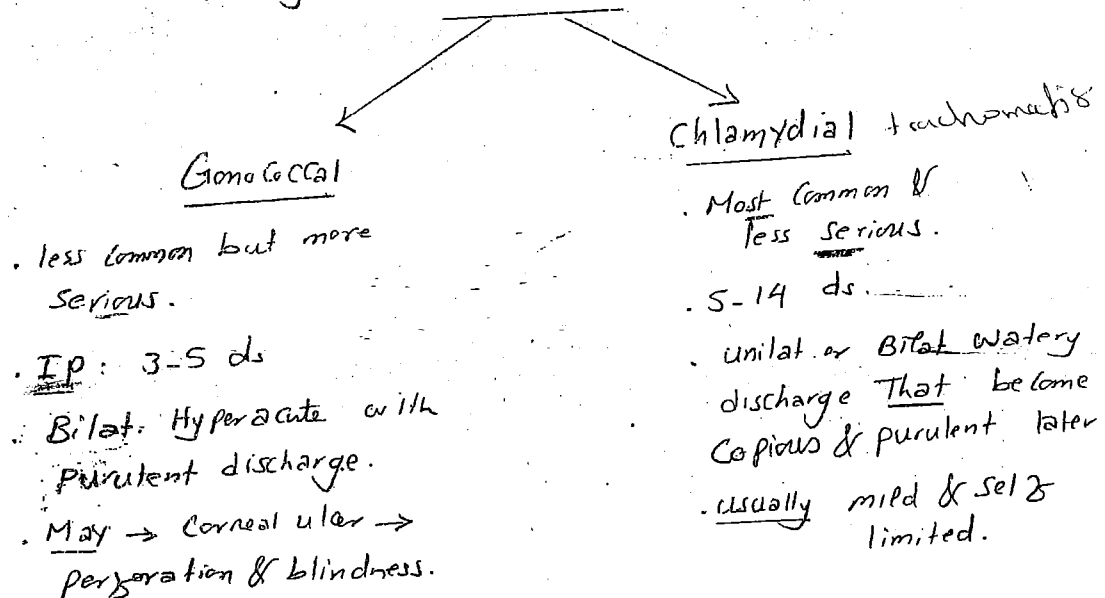 Gonococcal
. less common but more
serious.
. Ip : 3-5 ds
. Bilat. Hyperacute with
purulent discharge.
. May → corneal ulcer →
perforation & blindness.
Chlamydial trachomatis
. Most common &
less serious.
. 5-14 ds.
. unilat. or Bilat watery
discharge That become
copious & purulent later
. usually mild & self
limited.